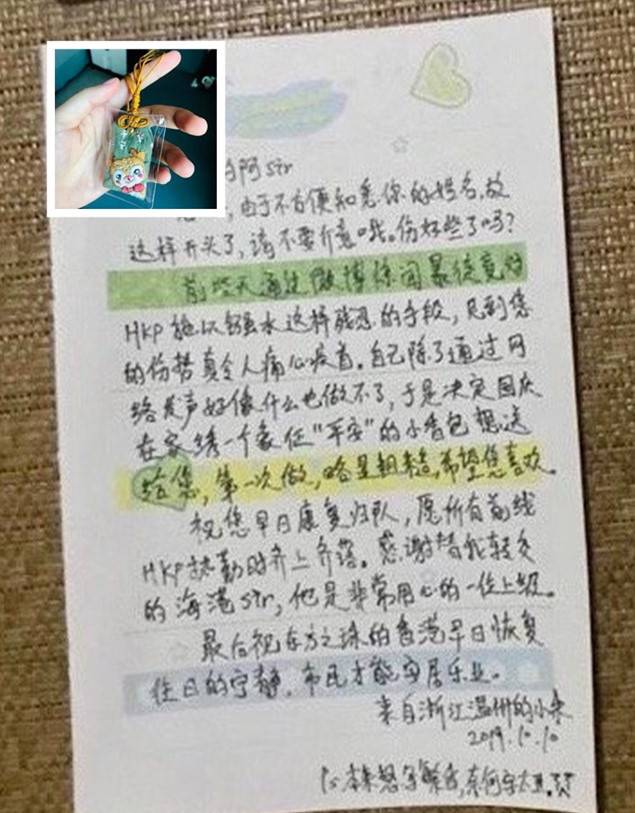 的阿Sir
由于不方便知悉你的姓名,故
这样开头了,请不要介意哦。伤好些了吗?
前些天通过微博惊闻暴徒竟对
HKP施以镪水这样残忍的手段,见到您
的伤势真令人痛心疾首。自己除了通过网
络发声好像什么也做不了,于是决定国庆
在家绣一个象征“平安”的小香包想送
给您,第一次做,略显粗糙,希望您喜欢。
祝您早日康复归队,愿所有前线
HKP执勤时齐上齐落。感谢替我转交
的海港Sir,他是非常用心的一位上级。
最后祝东方之珠的香港早日恢复
往日的宁静,市民才能安居乐业。
来自浙江温州的小朱
2019.10.10
Ps.本来想写繁体,奈何字太丑。
平安